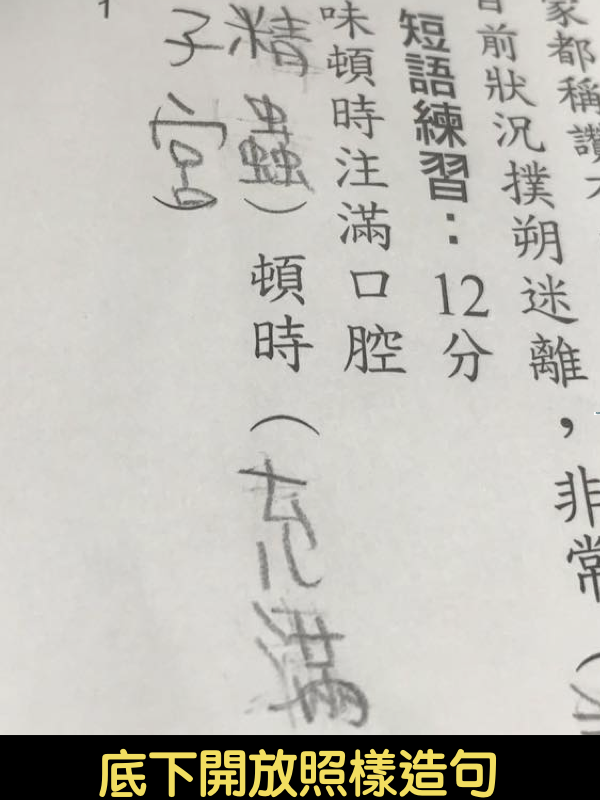 家都稱讚
目前狀況撲朔迷離，非常（
短語練習：12分
味頓時注滿口腔
精蟲）頓時（充滿
子宮）
1
底下開放照樣造句